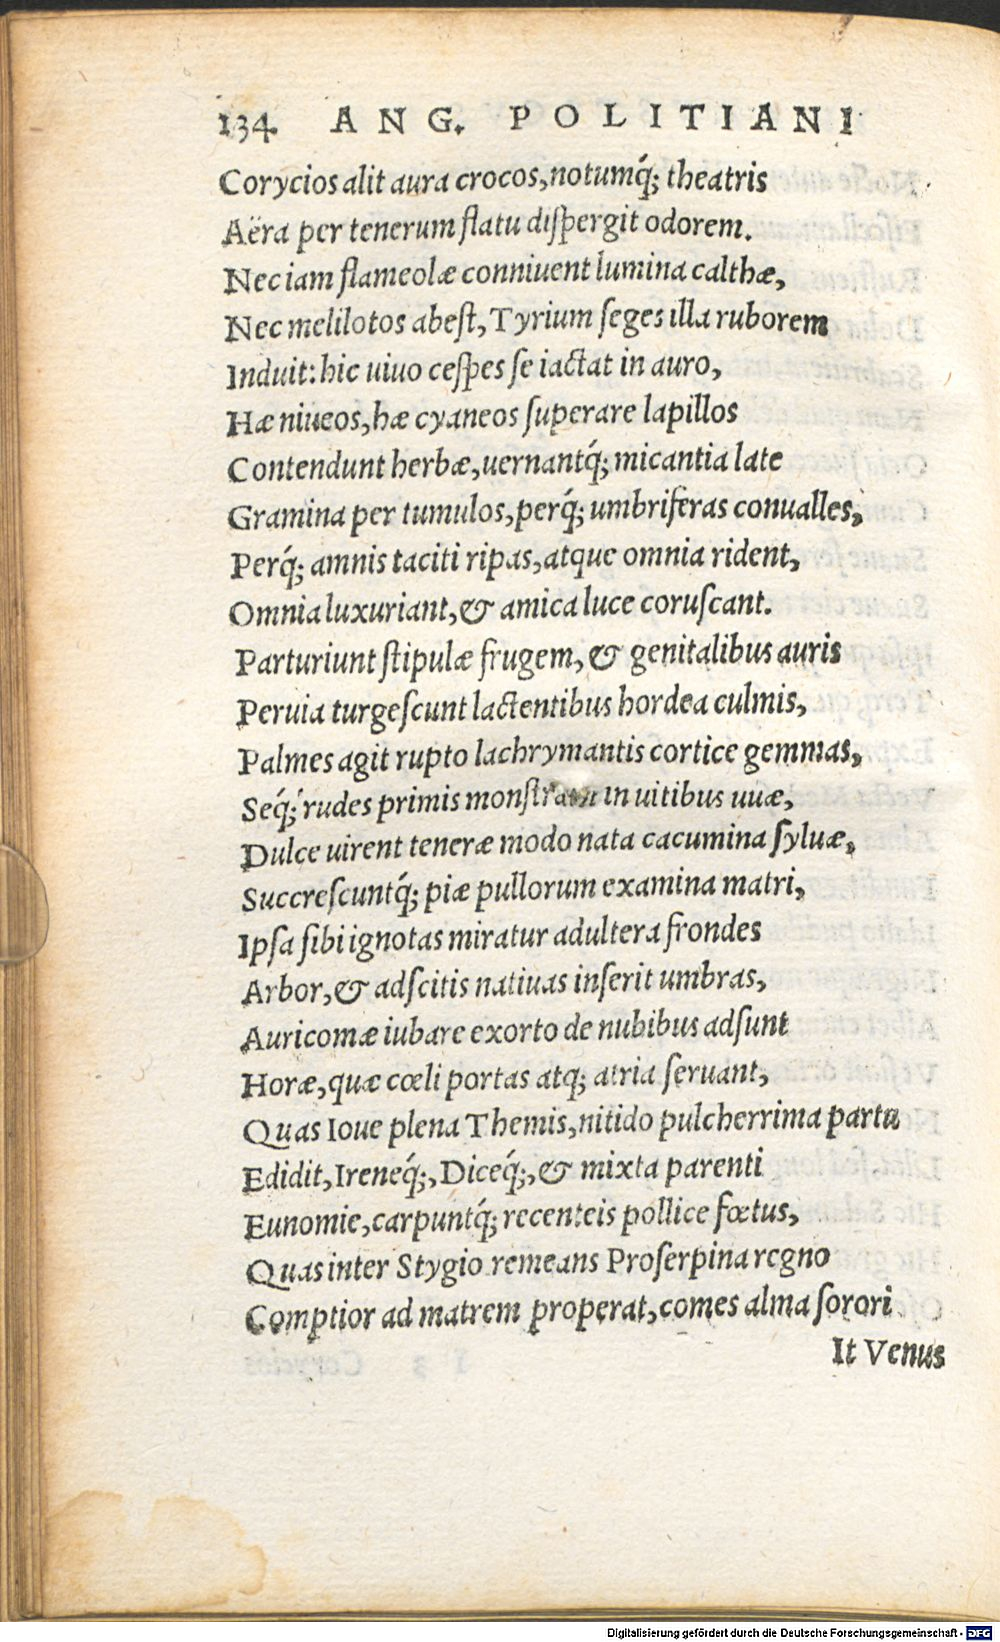 134. ANG. POLITIANI
Corycios alit aura crocos, notumq́; theatris
Aëra per tenerum flatu diſpergit odorem.
Nec iam flameolæ conniuent lumina calthæ,
Nec melilotos abeſt, Tyrium ſeges illa ruborem
Induit: hic uiuo ceſpes ſe iactat in auro,
Hæ niueos, hæ cyaneos ſuperare lapillos
Contendunt herbæ, uernantq́; micantia late
Gramina per tumulos, perq́; umbriferas conualles,
Perq́; amnis taciti ripas, atque omnia rident,
Omnia luxuriant, & amica luce coruſcant.
Parturiunt ſtipulæ frugem, & genitalibus auris
Peruia turgeſcunt lactentibus hordea culmis,
Palmes agit rupto lachrymantis cortice gemmas,
Seq́; rudes primis monſtratu in uitibus uuæ,
Dulce uirent teneræ modo nata cacumina ſyluæ,
Succreſcuntq́; piæ pullorum examina matri,
Ipſa ſibi ignotas miratur adultera frondes
Arbor, & adſcitis natiuas inſerit umbras,
Auricomæ iubare exorto de nubibus adſunt
Horæ, quæ cœli portas atq; atria ſeruant,
Quas Ioue plena Themis, nitido pulcherrima partu
Edidit, Ireneq́;, Diceq́;, & mixta parenti
Eunomie, carpuntq́; recenteis pollice fœtus,
Quas inter Stygio remeans Proſerpina regno
Comptior ad matrem properat, comes alma ſorori
It Venus
Digitalisierung gefördert durch die Deutsche Forschungsgemeinschaft - DFG